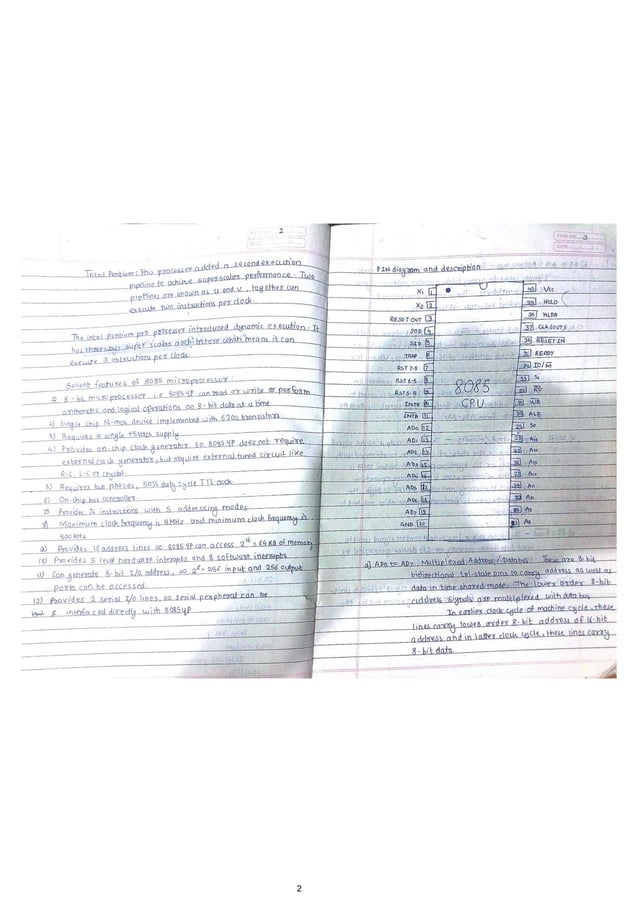 2
Intel Pentium: This processor added a second execution
pipeline to achieve superscalar performance. Two
pipelines are known as u and v, together can
execute two instructions per clock.
The intel pentium pro processor introduced dynamic execution. It
has three ways super scalar architecture which means it can
execute 3 instructions per clock
Salient features of 8085 microprocessor:
1) 8-bit microprocessor i.e 8085 μP can read or write or perform
arithmetic and logical operations on 8-bit data at a time
2) Single chip N-mos device implemented with 6200 transistors
3) Requires a single +5 Volts supply
4) Provides on-chip clock generator so 8085 μP does not require
external clock generator, but require external tuned circuit like
R-C, L-C or crystal.
5) Requires two phases, 50% duty cycle TTL clock
6) On-chip bus controller
7) Provides 74 instructions with 5 addressing modes
8) Maximum clock frequency is 3MHz and minimum clock frequency is
500 KHz
9) Provides 16 address lines so 8085 μP can access 2^16 = 64 KB of memory
10) Provides 5 level hardware interrupts and 8 software interrupts
11) Can generate 8-bit I/O address, so 2^8 = 256 input and 256 output
ports can be accessed
12) Provides 2 serial I/O lines, so serial peripheral can be
interfaced directly with 8085 μP
PAGE NO. 3
DATE
PIN diagram and description
X1 1
X2 2
RESET OUT 3
SOD 4
SID 5
TRAP 6
RST 7.5 7
RST 6.5 8
RST 5.5 9
INTR 10
INTA 11
AD0 12
AD1 13
AD2 14
AD3 15
AD4 16
AD5 17
AD6 18
AD7 19
GND 20
8085
CPU
40 Vcc
39 HOLD
38 HLDA
37 CLKOUT
36 RESET IN
35 READY
34 IO/M
33 S1
32 RD
31 WR
30 ALE
29 S0
A8
a) AD0 to AD7 : Multiplexed Address/Databus: These are 8-bit
bidirectional tri-state pins to carry address as well as
data in time shared mode. The lower order 8-bit
address signals are multiplexed with data bus
In earlier clock cycle of machine cycle, these
lines carry lower order 8-bit address of 16-bit
address and in latter clock cycle, these lines carry
8-bit data.
2